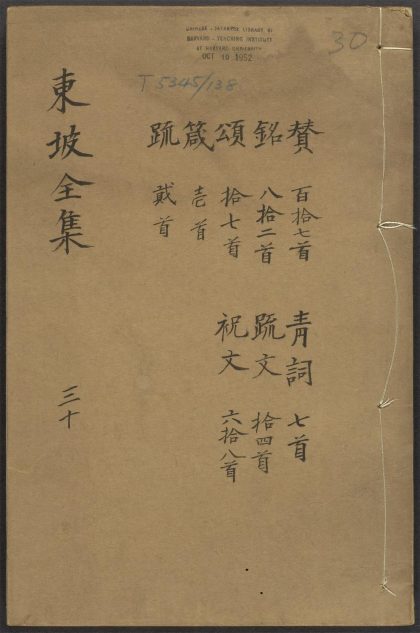 CHINESE - JAPANESE LIBRARY OF
HARVARD - YENCHING INSTITUTE
AT HARVARD UNIVERSITY
OCT 10 1952
30
T 5345/138
賛 百拾七首 青詞 七首
銘 八拾二首 疏文 拾四首
頌 拾七首 祝文 六拾八首
箴 壱首
疏 貳首
東坡全集 三十